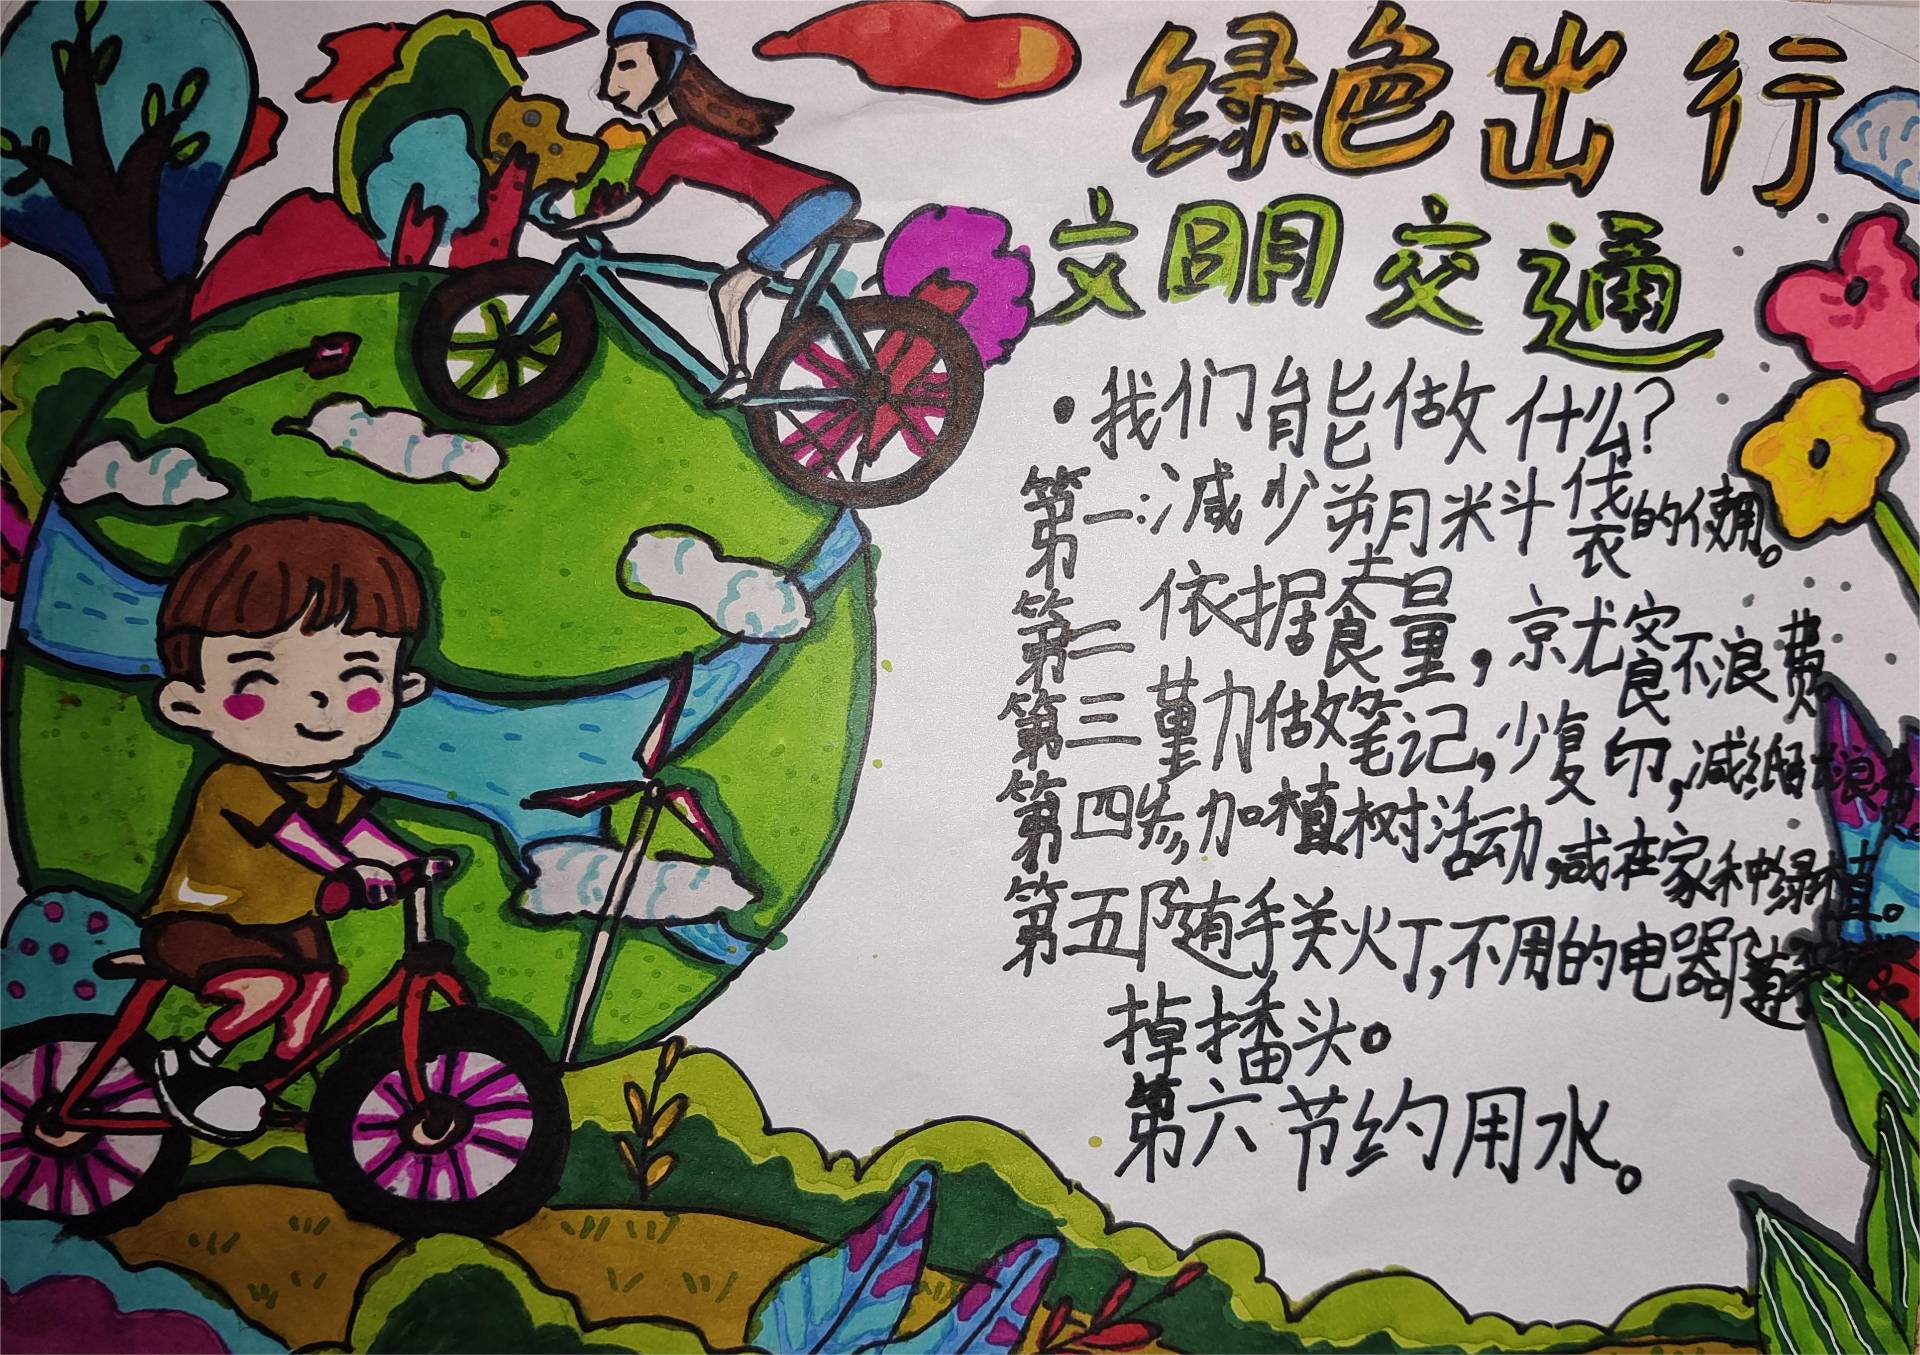 绿色出行
文明交通
·我们能做什么?
第一:减少塑料袋的使用。
第二依据食量,就餐不浪费
第三勤做笔记,少复印,减纸浪费。
第四参加植树活动,或在家种绿植。
第五随手关灯,不用的电器随手
掉插头。
第六节约用水。